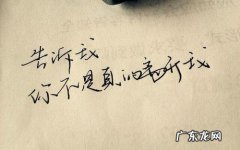 告诉我
你不是真的离开我
广东龙网